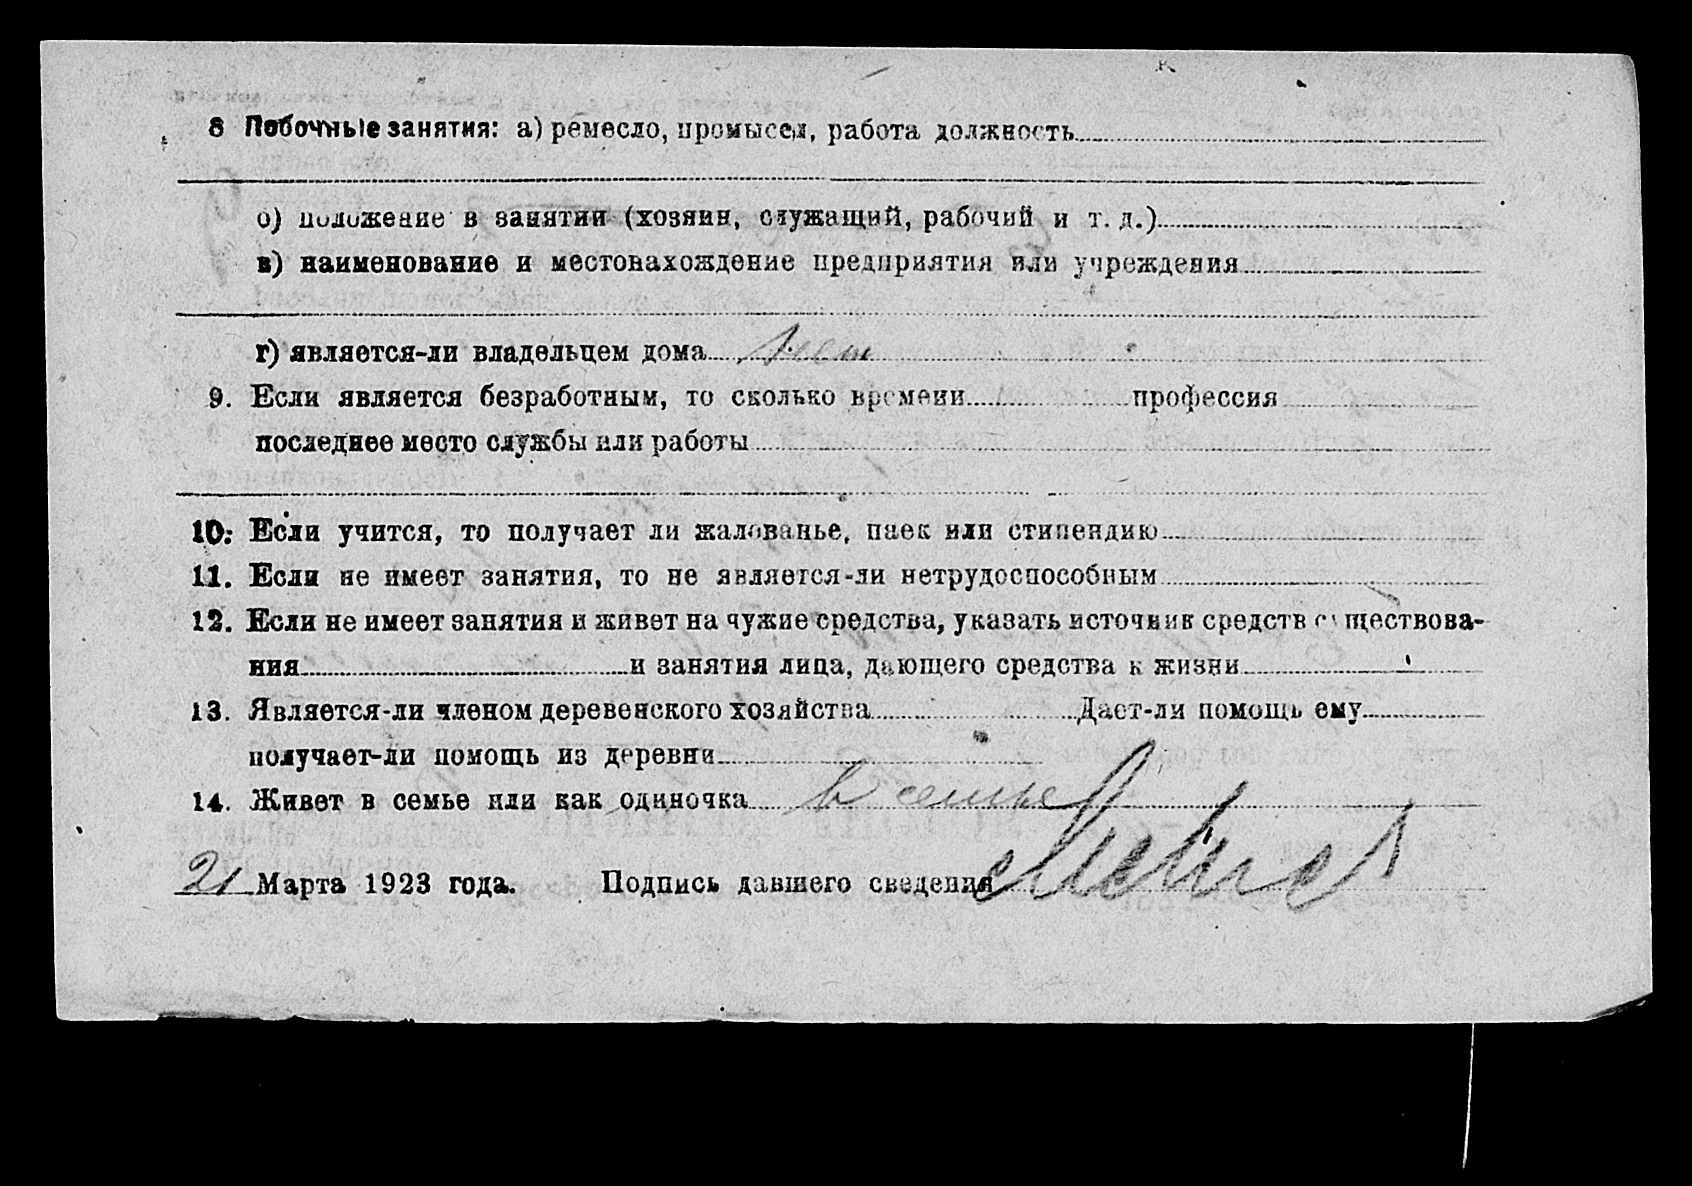 8 Побочные занятия: а) ремесло, промысел, работа должность
б) положение в занятии (хозяин, служащий, рабочий и т. д.)
в) наименование и местонахождение предприятия или учреждения
г) является-ли владельцем дома нет
9. Если является безработным, то сколько времени профессия
последнее место службы или работы
10. Если учится, то получает ли жалованье, паек или стипендию
11. Если не имеет занятия, то не является-ли нетрудоспособным
12. Если не имеет занятия и живет на чужие средства, указать источник средств существова-
ния и занятия лица, дающего средства к жизни
13. Является-ли членом деревенского хозяйства Дает-ли помощь ему
получает-ли помощь из деревни
14. Живет в семье или как одиночка в семье
21 Марта 1923 года. Подпись давшего сведения